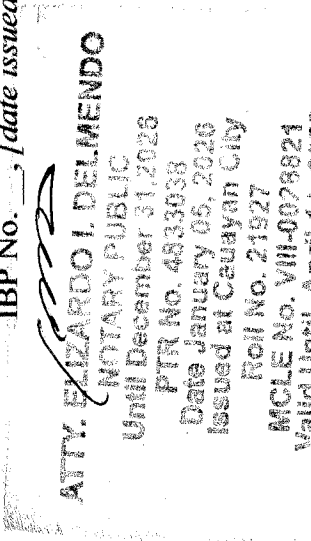 IBP No. __, [date issued
ATTY. ELIZARDO I. DELMENDO
NOTARY PUBLIC
Until December 31, 2026
PTR No. 4833038
Date January 05, 2026
Issued at Cauayan City
Roll No. 21927
MCLE No. VIII-0078821
Valid Until April